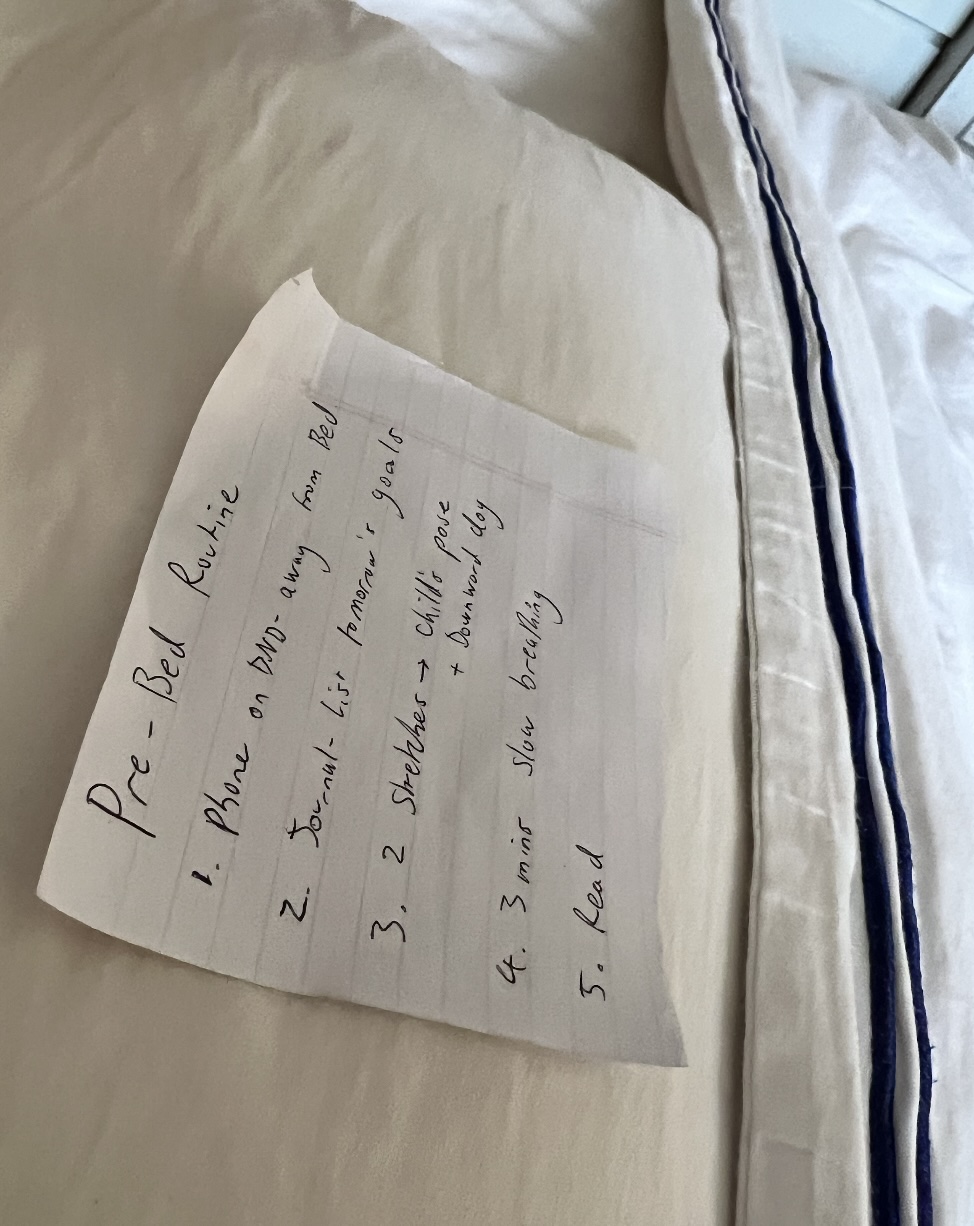 Pre-Bed Routine
1. Phone on DND- away from Bed
2. Journal- List tomorrow's goals
3. 2 Stretches → child's pose
+ Downward dog
4. 3 mins slow breathing
5. Read